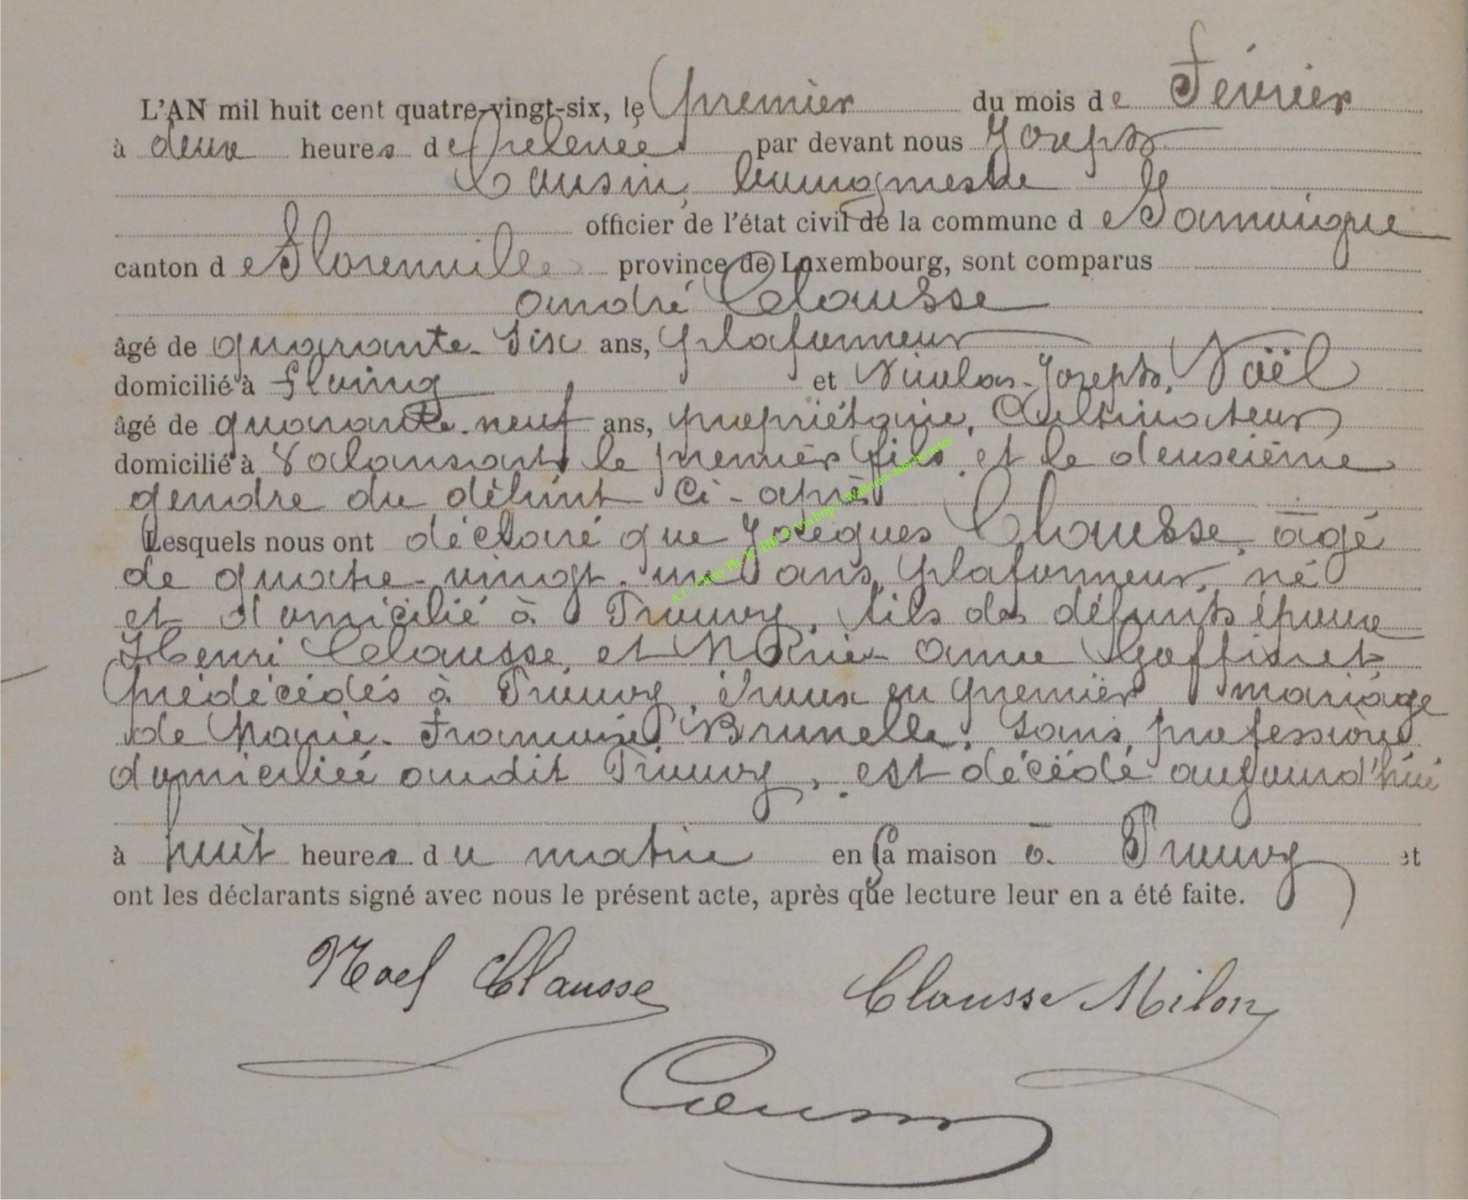 L'AN mil huit cent quatre-vingt-six, le premier du mois de Février
à deux heures de relevée par devant nous Joseph
Causin, bourgmestre
officier de l'état civil de la commune de Jamoigne
canton de Florenville province de Luxembourg, sont comparus
andré Clausse
âgé de quarante-six ans, plafonneur
domicilié à et Nicolas-Joseph, Noël
âgé de quarante-neuf ans, propriétaire, Cultivateur
domicilié à Valansart le premier fils et le deuxième
gendre du défunt ci-après
Lesquels nous ont déclaré que Jacques Clausse, âgé
de quatre-vingt-un ans, plafonneur, né
et domicilié à Prouvy, fils des défunts époux
Henri Clausse, et Marie-anne Goffinet
prédécédés à Prouvy, époux en premier mariage
de Marie-Françoise Brunelle, sans profession
domiciliée audit Prouvy, est décédé aujourd'hui
à huit heures du matin en sa maison à Prouvy et
ont les déclarants signé avec nous le présent acte, après que lecture leur en a été faite.
Noel Clausse Clausse Milon
Causin